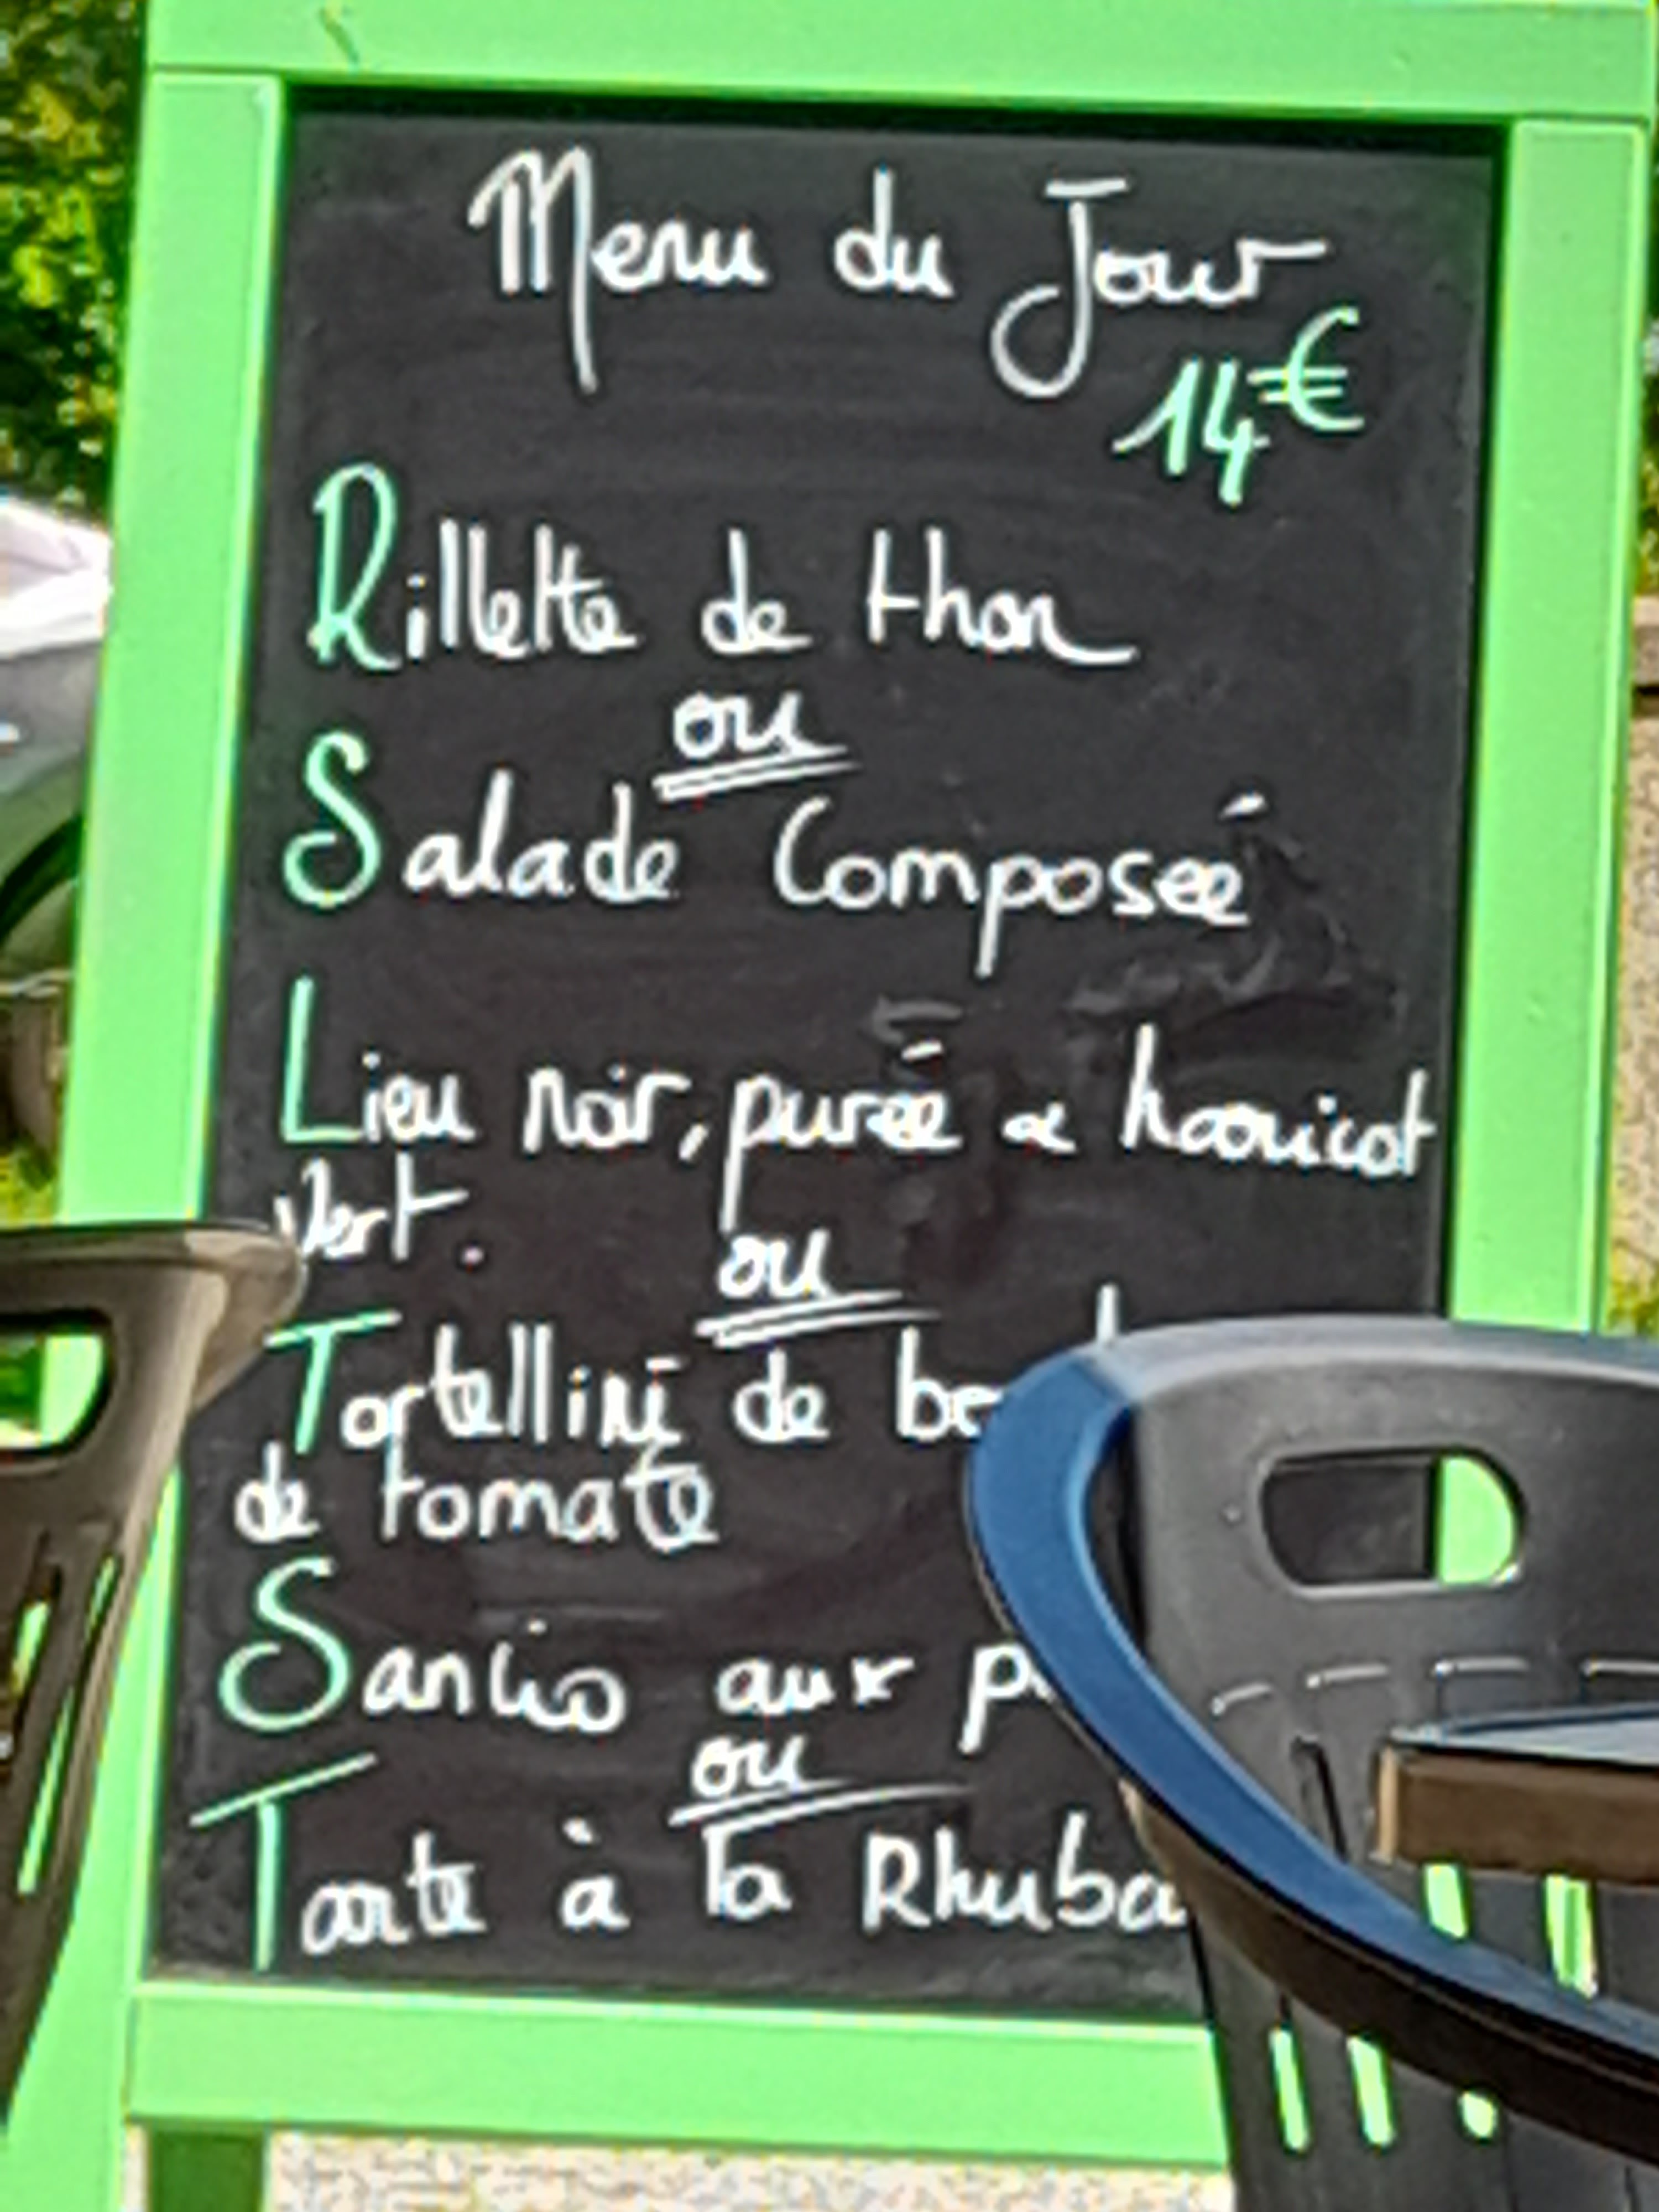 Menu du Jour
14€
Rillette de thon
ou
Salade Composée
Lieu noir, purée & haricot
Vert.
ou
Tortellini de
de tomate
aux
ou
Tarte à la